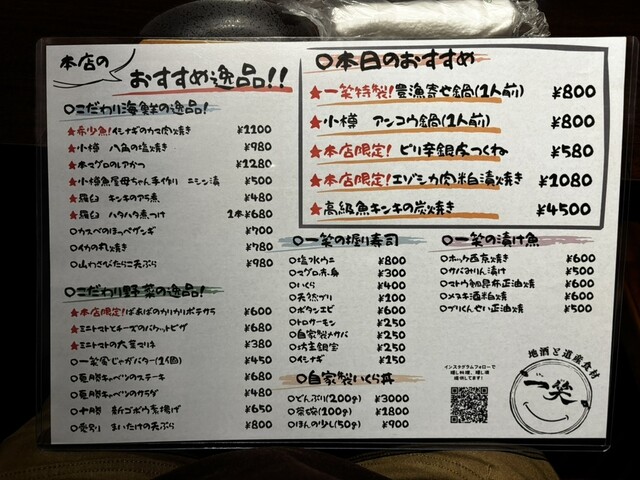 本店の
おすすめ逸品!!
○こだわり海鮮の逸品!
★希少魚!イシナギのカマ肉焼き ¥1100
★小樽 八角の塩焼き ¥980
★本マグロのレアかつ ¥1280
★小樽魚屋母ちゃん手作り ニシン漬 ¥500
★羅臼 キンキのアラ煮 ¥480
★羅臼 ハタハタ煮つけ 1本¥680
○カスベのほっぺザンギ ¥700
○イカの丸焼き ¥780
○山わさびたらこ天ぷら ¥980
○こだわり野菜の逸品!
★本店限定!ばあばのカリカリポテサラ ¥600
★ミニトマトとチーズのバケットピザ ¥680
★ミニトマトの大葉マリネ ¥380
○一笑風じゃがバター(1個) ¥450
○札幌キャベツのステーキ ¥680
○札幌キャベツのサラダ ¥480
○十勝 新ゴボウ素揚げ ¥650
○愛別 まいたけの天ぷら ¥800
○本日のおすすめ
★一笑特製!豊漁寄せ鍋(1人前) ¥800
★小樽 アンコウ鍋(1人前) ¥800
★本店限定!ピリ辛銀皮つくね ¥580
★本店限定!エゾシカ肉粕漬焼き ¥1080
★高級魚キンキの炭焼き ¥4500
○一笑の握り寿司
○塩水ウニ ¥800
○マグロ赤身 ¥300
○いくら ¥400
○天然ブリ ¥100
○ボタンエビ ¥600
○トロサーモン ¥250
○自家製〆サバ ¥250
○坊主銀宝 ¥250
○イシナギ ¥150
○自家製いくら丼
○どんぶり(200g) ¥3000
○茶碗(100g) ¥1800
○ほんの少し(50g) ¥900
○一笑の漬け魚
○ホッケ西京焼き ¥600
○サバみりん漬け ¥500
○マトウ鯛昆布正油焼 ¥600
○メヌキ酒粕焼 ¥600
○ブリくんせい正油焼 ¥500
インスタグラムフォローで
地酒と道産食材
一笑